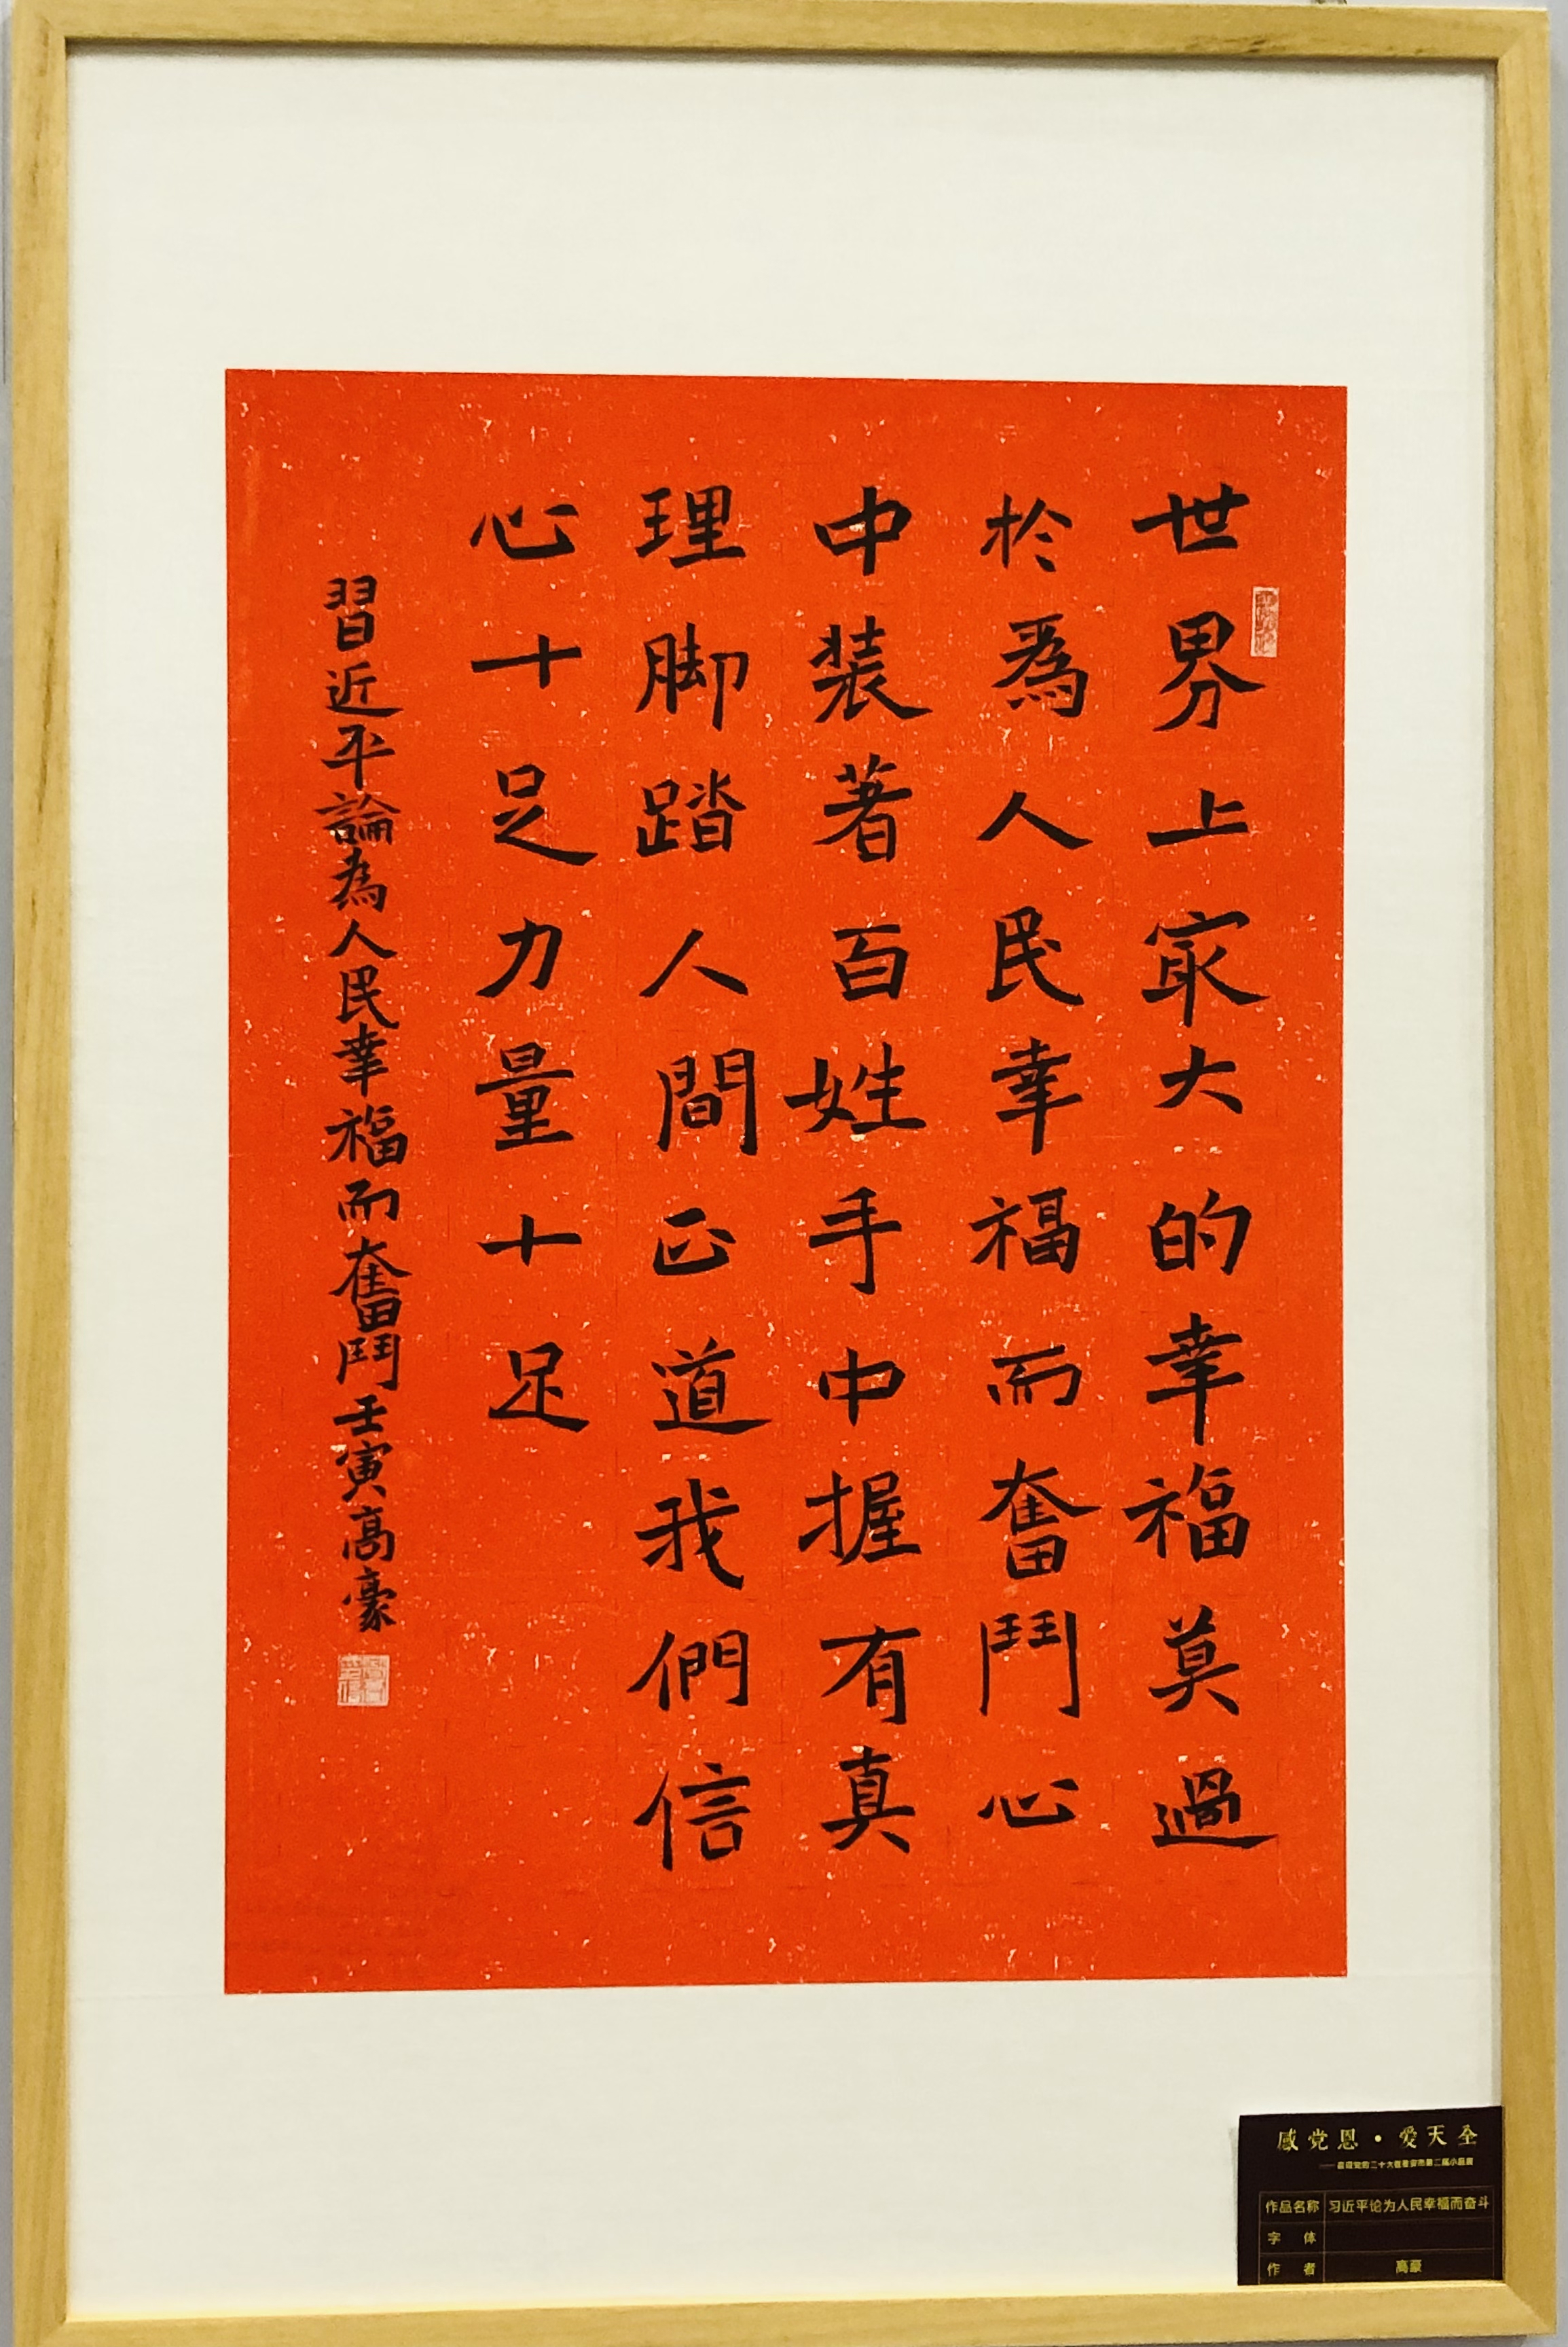 世界上冣大的幸福莫過
於為人民幸福而奮鬥心
中装著百姓手中握有真
理脚踏人間正道我們信
心十足力量十足
習近平論為人民幸福而奮鬥壬寅高豪
感党恩·爱天全
作品名称 习近平论为人民幸福而奋斗
字体
作者 高豪